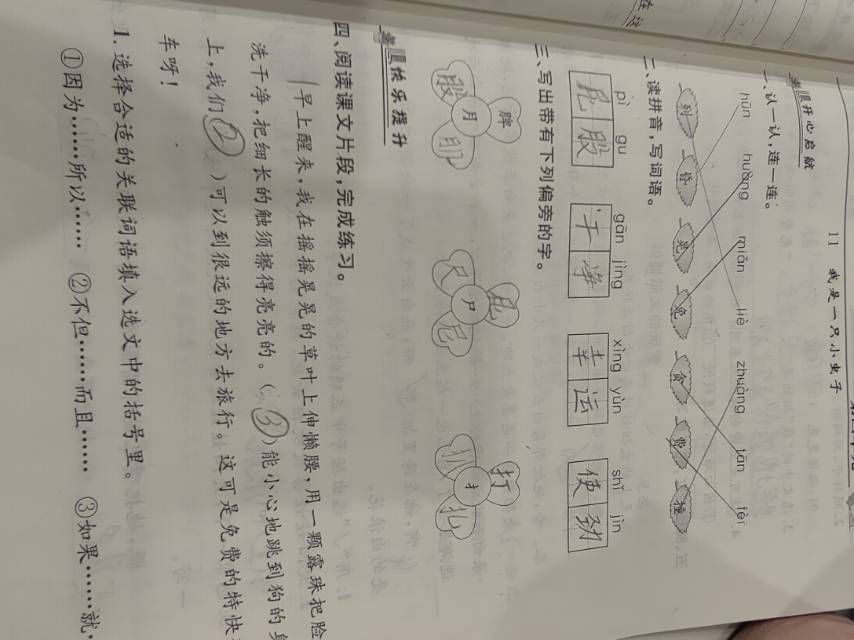 11 我是一只小虫子
开心启航
一、认一认,连一连。
hūn huàng miǎn liè zhuàng tān fèi
列 昏 晃 免 贪 费 撞
二、读拼音,写词语。
pì gu gān jìng xìng yùn shǐ jìn
屁股 干净 幸运 使劲
三、写出带有下列偏旁的字。
脖 月 股
屁 尸 尺 尼
打 扌 扒 払
快乐提升
四、阅读课文片段,完成练习。
早上醒来,我在摇摇晃晃的草叶上伸懒腰,用一颗露珠把脸
洗干净,把细长的触须擦得亮亮的。(③)能小心地跳到狗的身
上,我们(②)可以到很远的地方去旅行。这可是免费的特快
车呀!
1. 选择合适的关联词语填入选文中的括号里。
①因为……所以…… ②不但……而且…… ③如果……就